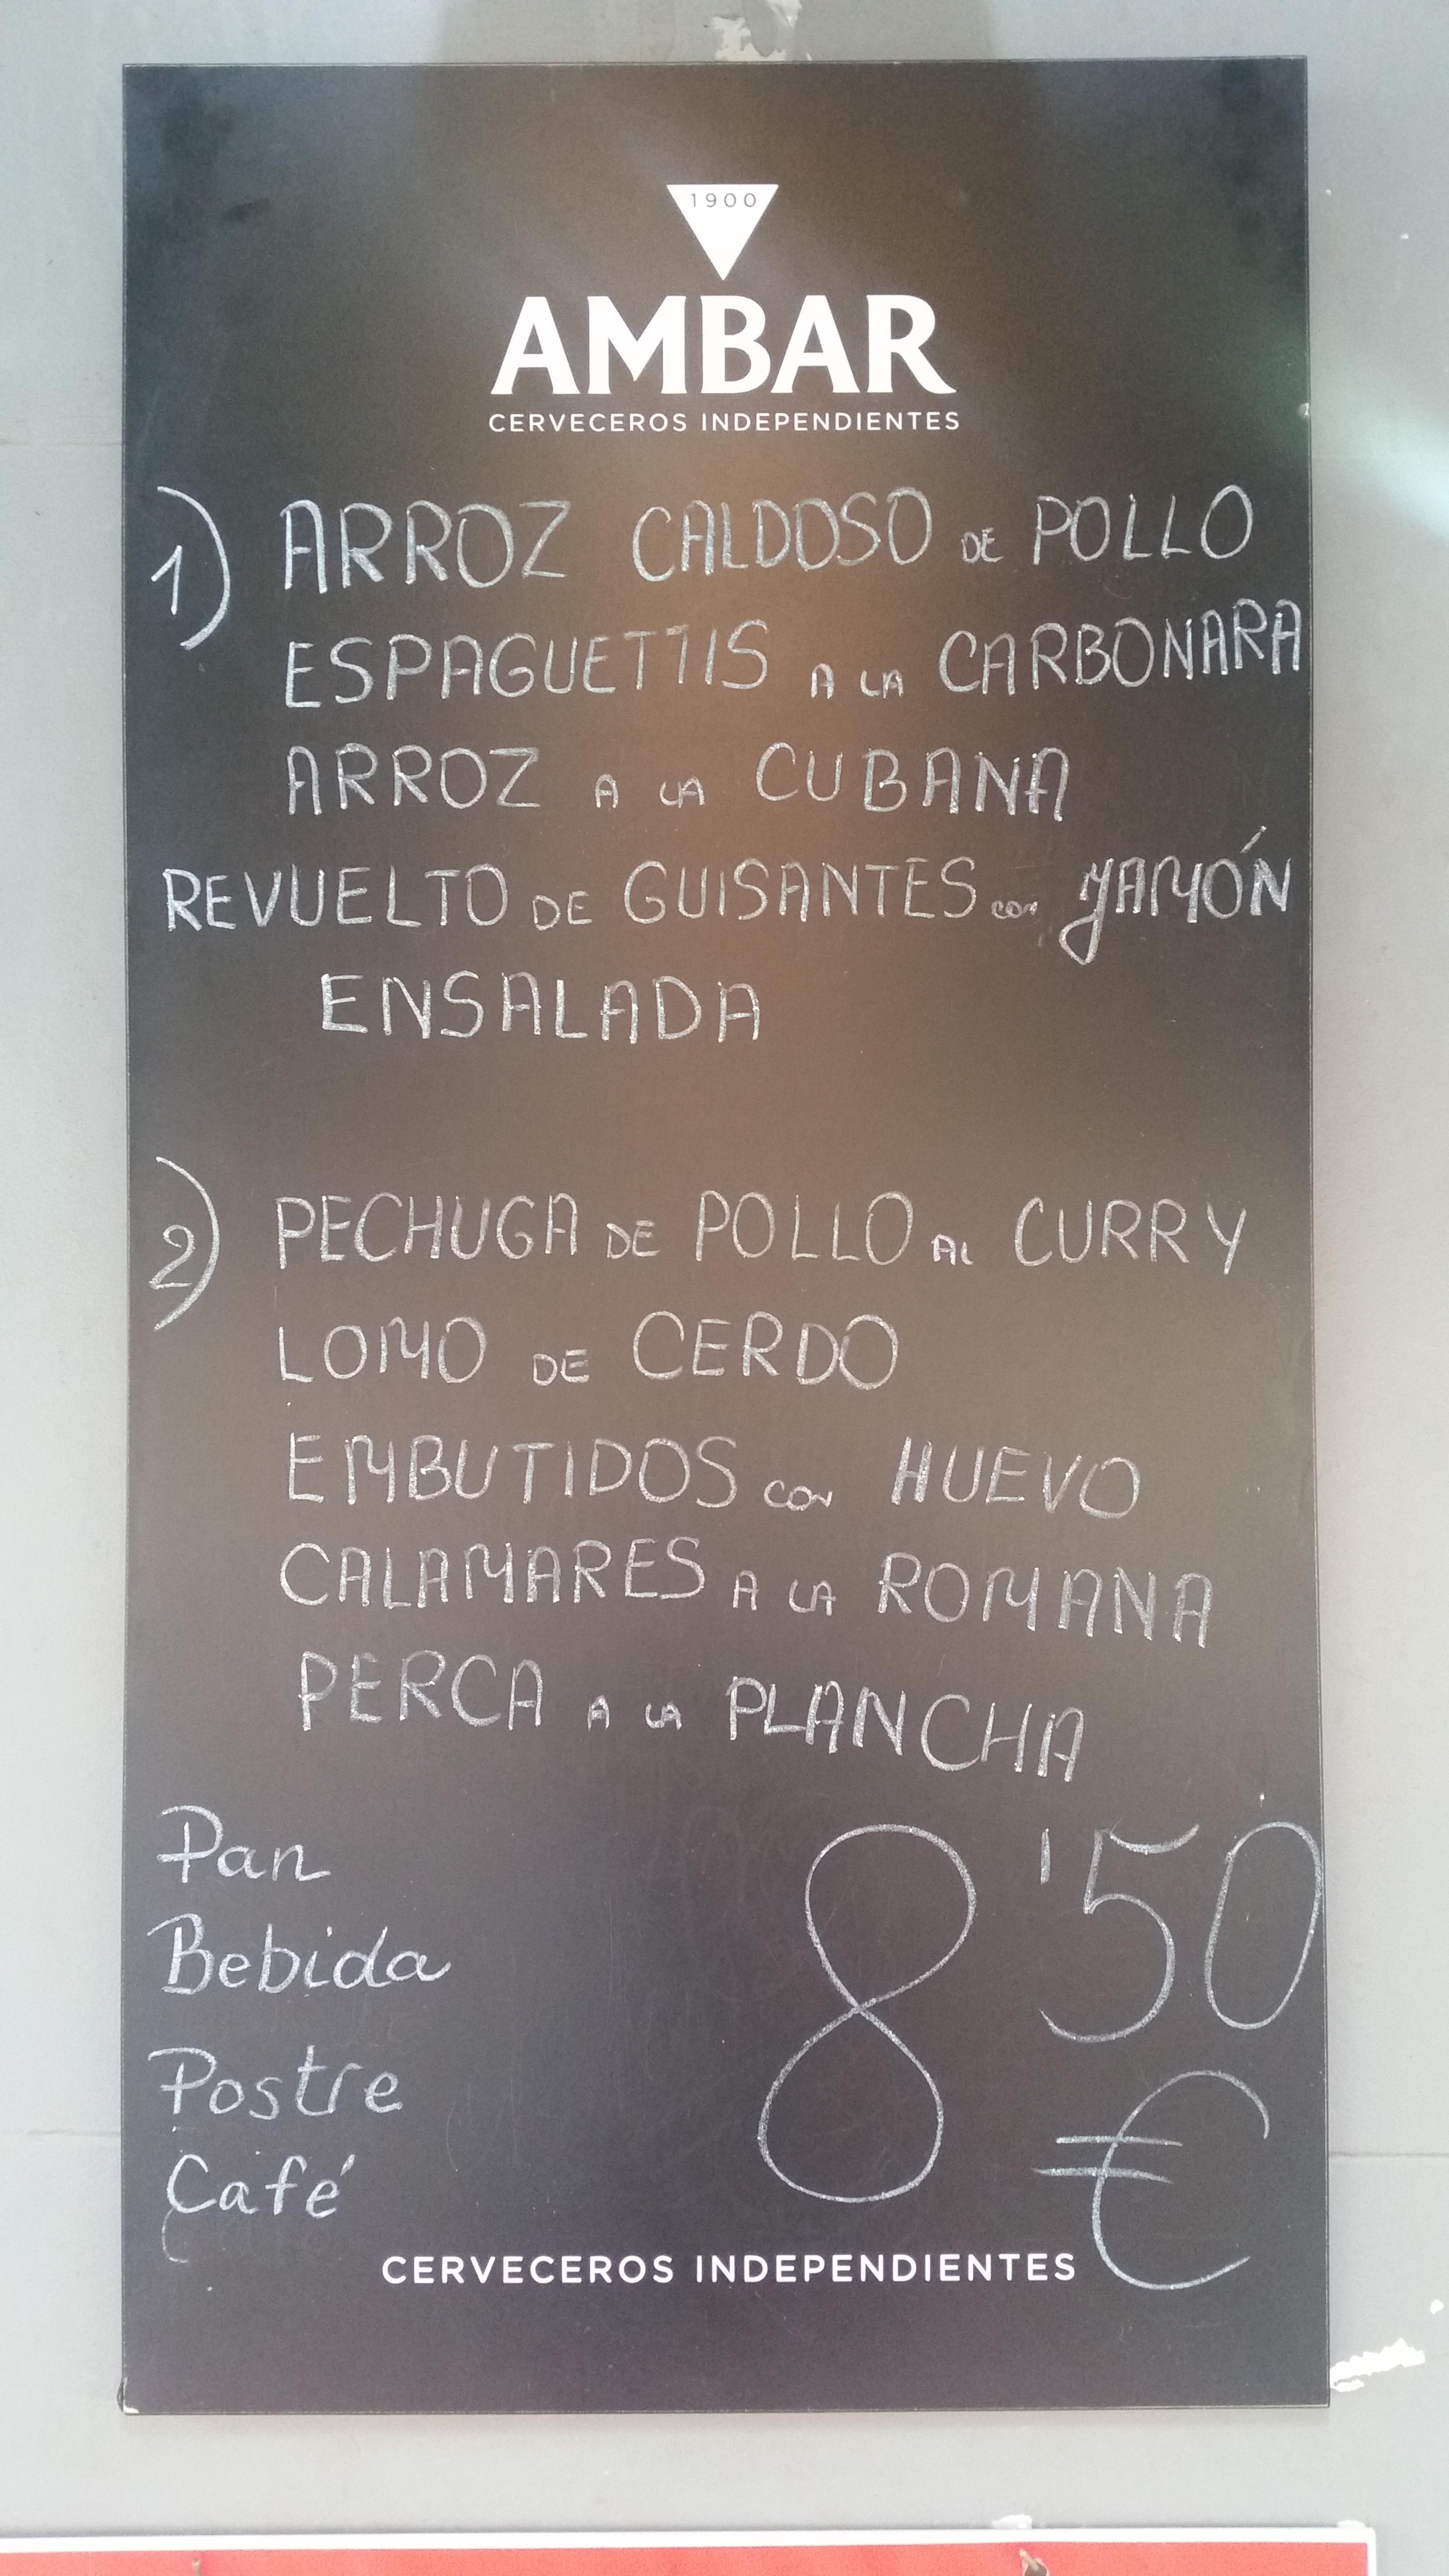 1900
AMBAR
CERVECEROS INDEPENDIENTES
1) ARROZ CALDOSO DE POLLO
ESPAGUETTIS A LA CARBONARA
ARROZ A LA CUBANA
REVUELTO DE GUISANTES con JAMÓN
ENSALADA
2) PECHUGA DE POLLO AL CURRY
LOMO DE CERDO
EMBUTIDOS con HUEVO
CALAMARES A LA ROMANA
PERCA A LA PLANCHA
Pan
Bebida
Postre
Café
8'50
€
CERVECEROS INDEPENDIENTES